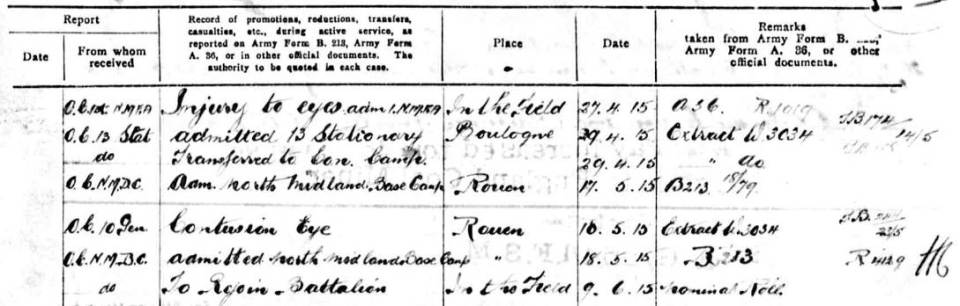 Report
Record of promotions, reductions, transfers, casualties, etc., during active service, as reported on Army Form B. 213, Army Form A. 36, or in other official documents. The authority to be quoted in each case.
Place
Date
Remarks taken from Army Form B. Army Form A. 36, or other official documents.
Date
From whom received
O.C. 1st N.M.F.A Injury to eyes adm 1.N.M.F.A In the Field 27.4.15 A36. R1019
O.C. 13 Stat admitted 13 Stationary Boulogne 29.4.15 Extract W3034 14/5
do Transferred to Con. Camp. 29.4.15 " do
O.C. N.M.B.C. Adm. North Midland Base Camp Rouen 17.5.15 B213 18/79
O.C. 10 Gen Contusion Eye Rouen 16.5.15 Extract W3034
O.C. N.M.B.C. admitted North Midland Base Camp " 18.5.15 B213
do To Rejoin Battalion In the Field 9.6.15 Nominal Roll.